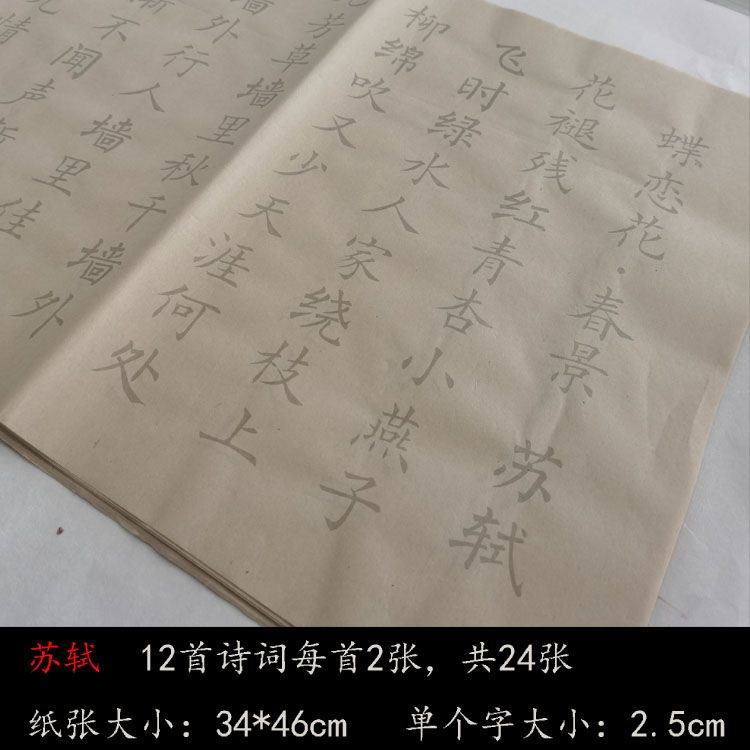 蝶恋花·春景 苏轼
花褪残红青杏小燕子
飞时绿水人家绕枝上
柳绵吹又少天涯何处
芳草墙里秋千墙外
墙外行人墙里佳
渐不闻声
情
苏轼 12首诗词每首2张，共24张
纸张大小：34*46cm 单个字大小：2.5cm